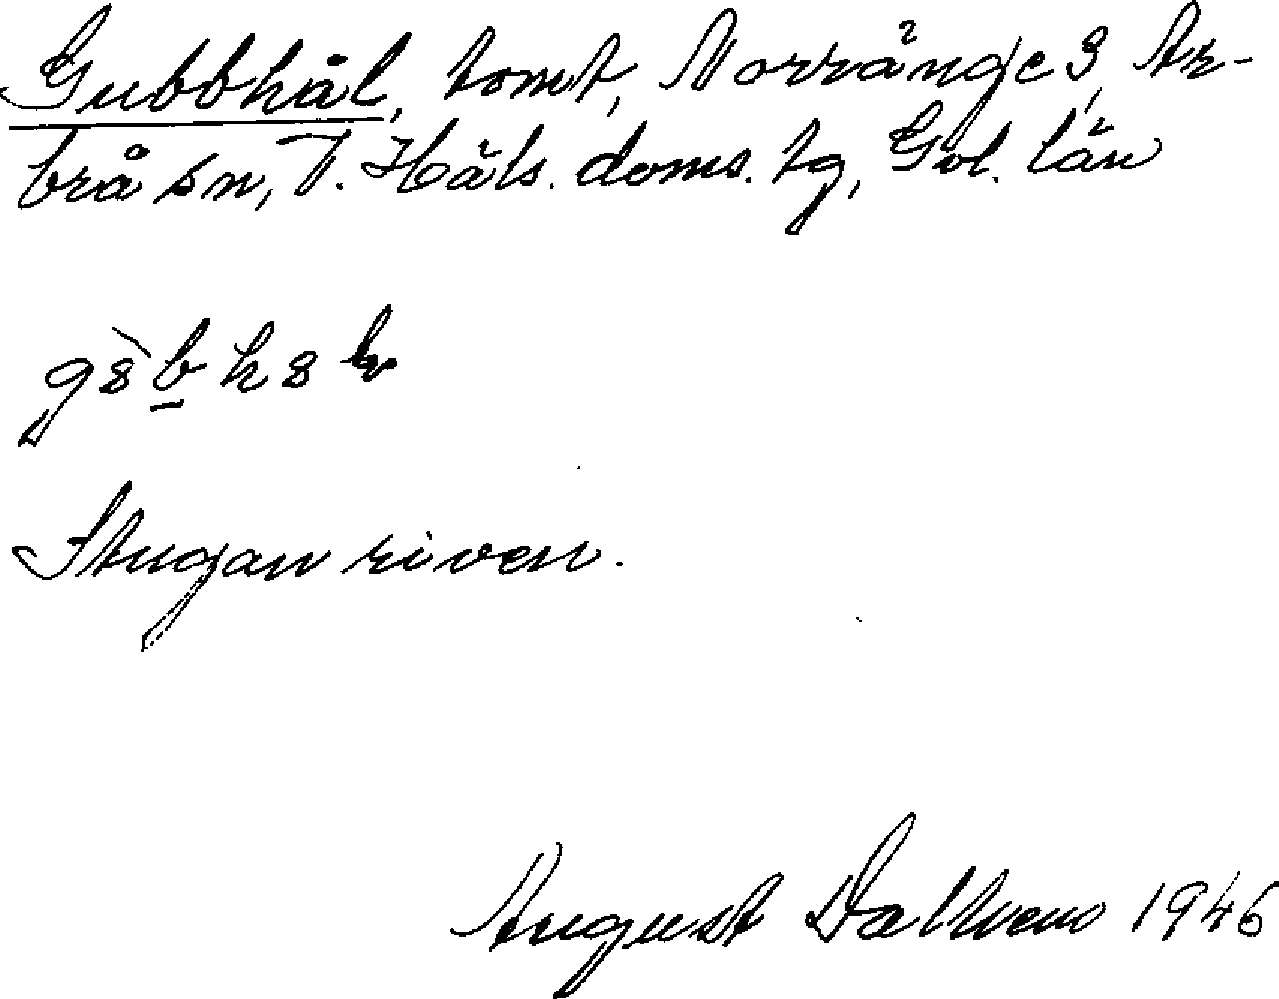 Gubbhål, tomt, Norränge 3, Ar-
brå sn, V. Häls. doms. tg, Gvl. län
Stugan riven.
August 1946